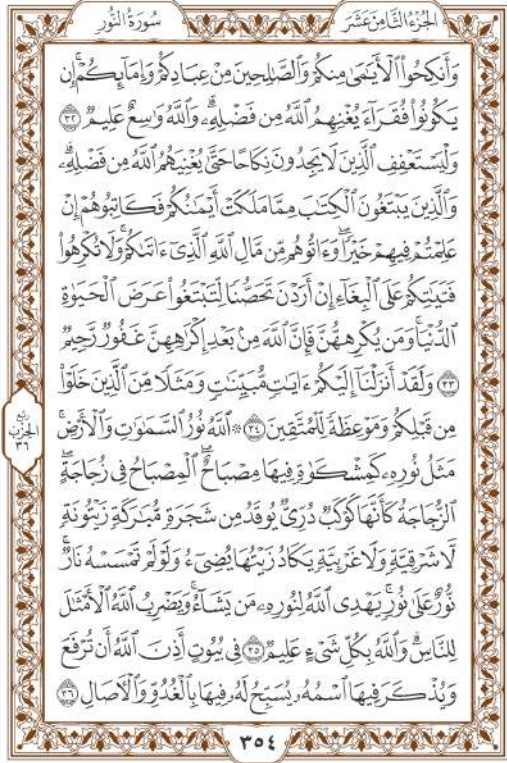 سُورَةُ النُّور
الجُزْءُ الثَّامِنَ عَشَرَ
وَأَنكِحُوا۟ ٱلۡأَيَـٰمَىٰ مِنكُمۡ وَٱلصَّـٰلِحِينَ مِنۡ عِبَادِكُمۡ وَإِمَآئِكُمۡۚ إِن
يَكُونُوا۟ فُقَرَآءَ يُغۡنِهِمُ ٱللَّهُ مِن فَضۡلِهِۦۗ وَٱللَّهُ وَٰسِعٌ عَلِيمٌ ٣٢
وَلۡيَسۡتَعۡفِفِ ٱلَّذِينَ لَا يَجِدُونَ نِكَاحًا حَتَّىٰ يُغۡنِيَهُمُ ٱللَّهُ مِن فَضۡلِهِۦۗ
وَٱلَّذِينَ يَبۡتَغُونَ ٱلۡكِتَـٰبَ مِمَّا مَلَكَتۡ أَيۡمَـٰنُكُمۡ فَكَاتِبُوهُمۡ إِنۡ
عَلِمۡتُمۡ فِيهِمۡ خَيۡرًاۖ وَءَاتُوهُم مِّن مَّالِ ٱللَّهِ ٱلَّذِىٓ ءَاتَىٰكُمۡۚ وَلَا تُكۡرِهُوا۟
فَتَيَـٰتِكُمۡ عَلَى ٱلۡبِغَآءِ إِنۡ أَرَدۡنَ تَحَصُّنًا لِّتَبۡتَغُوا۟ عَرَضَ ٱلۡحَيَوٰةِ
ٱلدُّنۡيَاۚ وَمَن يُكۡرِههُّنَّ فَإِنَّ ٱللَّهَ مِنۢ بَعۡدِ إِكۡرَٰهِهِنَّ غَفُورٌ رَّحِيمٌ
٣٣ وَلَقَدۡ أَنزَلۡنَآ إِلَيۡكُمۡ ءَايَـٰتٍ مُّبَيِّنَـٰتٍ وَمَثَلًا مِّنَ ٱلَّذِينَ خَلَوۡا۟
مِن قَبۡلِكُمۡ وَمَوۡعِظَةً لِّلۡمُتَّقِينَ ٣٤ ۞ ٱللَّهُ نُورُ ٱلسَّمَـٰوَٰتِ وَٱلۡأَرۡضِۚ
مَثَلُ نُورِهِۦ كَمِشۡكَوٰةٍ فِيهَا مِصۡبَاحٌۖ ٱلۡمِصۡبَاحُ فِى زُجَاجَةٍۖ
ٱلزُّجَاجَةُ كَأَنَّهَا كَوۡكَبٌ دُرِّىٌّ يُوقَدُ مِن شَجَرَةٍ مُّبَـٰرَكَةٍ زَيۡتُونَةٍ
لَّا شَرۡقِيَّةٍ وَلَا غَرۡبِيَّةٍ يَكَادُ زَيۡتُهَا يُضِىٓءُ وَلَوۡ لَمۡ تَمۡسَسۡهُ نَارٌۚ
نُّورٌ عَلَىٰ نُورٍۗ يَهۡدِى ٱللَّهُ لِنُورِهِۦ مَن يَشَآءُۚ وَيَضۡرِبُ ٱللَّهُ ٱلۡأَمۡثَـٰلَ
لِلنَّاسِۗ وَٱللَّهُ بِكُلِّ شَىۡءٍ عَلِيمٌ ٣٥ فِى بُيُوتٍ أَذِنَ ٱللَّهُ أَن تُرۡفَعَ
وَيُذۡكَرَ فِيهَا ٱسۡمُهُۥ يُسَبِّحُ لَهُۥ فِيهَا بِٱلۡغُدُوِّ وَٱلۡـَٔاصَالِ ٣٦
ربع
الحزب
٣٦
٣٥٤